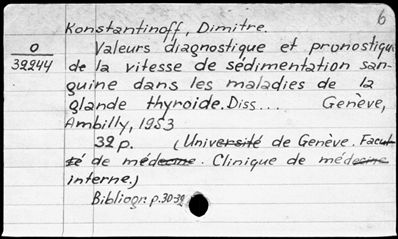 6
Konstantinoff, Dimitre.
O
39244
Valeurs diagnostique et pronostique
de la vitesse de sédimentation san-
guine dans les maladies de la
glande thyroide. Diss... Genève,
Ambilly, 1953
32 p. (Université de Genève. Facul-
té de médecine. Clinique de médecine
interne.)
Bibliogr: p. 30-32